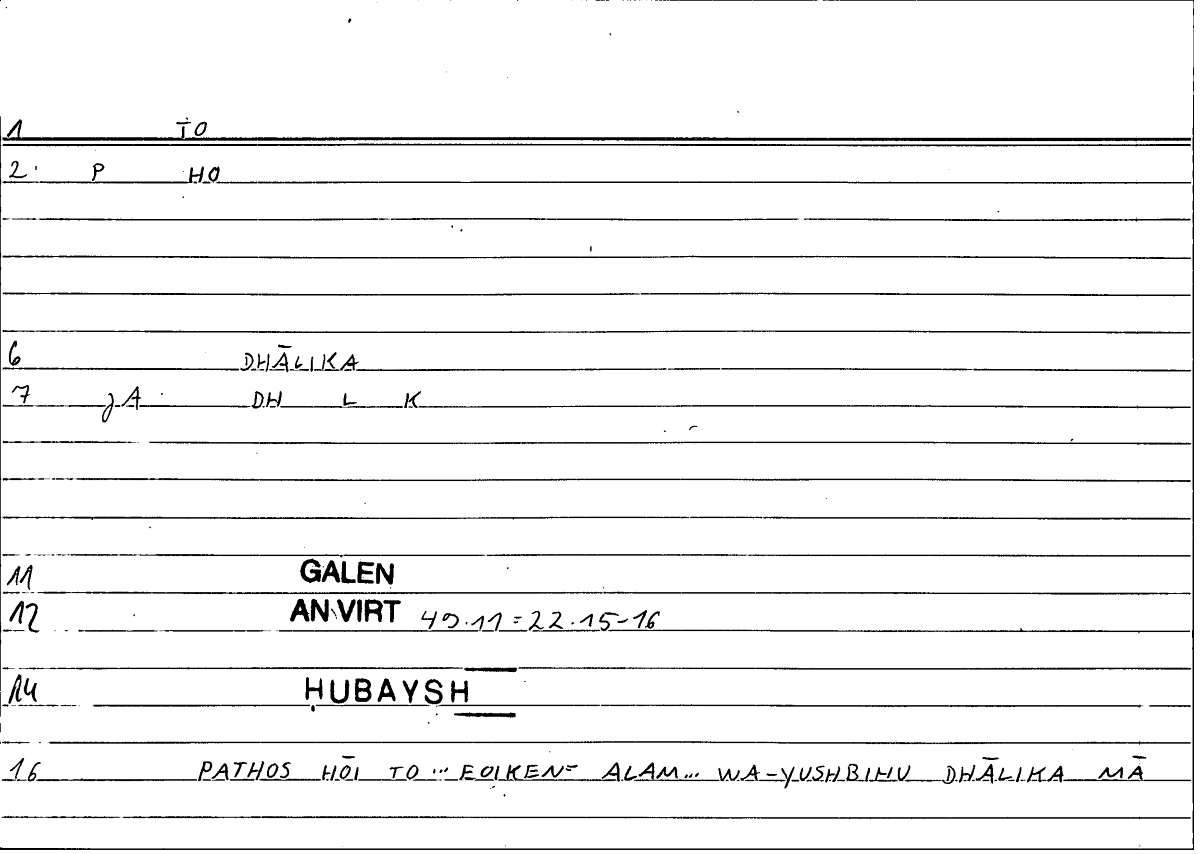 1 TO
2. P HO
6 DHĀLIKA
7 JA DH L K
11 GALEN
12 AN VIRT 49.11=22.15-16
14 ḤUBAYSH
16 PATHOS HŌI TO ... EOIKEN= ALAM... WA-YUSHBIHU DHĀLIKA MĀ